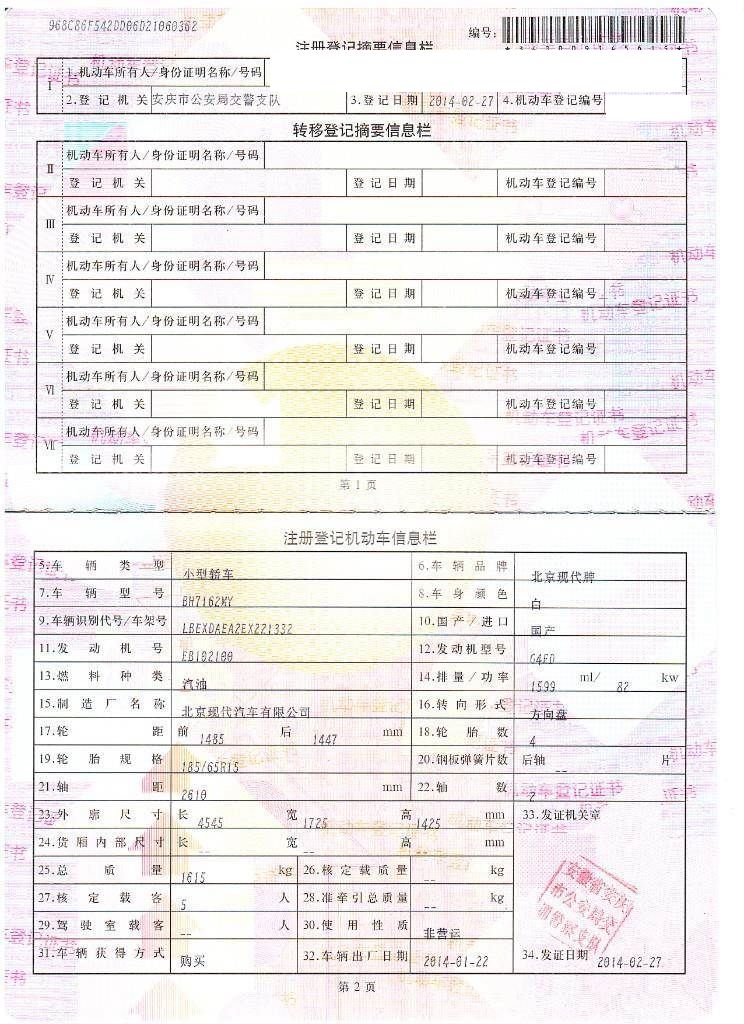 968C86F542DD06D21060362
编号:
注册登记摘要信息栏
I 1.机动车所有人/身份证明名称/号码
2.登记机关 安庆市公安局交警支队 3.登记日期 2014-02-27 4.机动车登记编号
转移登记摘要信息栏
II 机动车所有人/身份证明名称/号码
登记机关 登记日期 机动车登记编号
III 机动车所有人/身份证明名称/号码
登记机关 登记日期 机动车登记编号
IV 机动车所有人/身份证明名称/号码
登记机关 登记日期 机动车登记编号
V 机动车所有人/身份证明名称/号码
登记机关 登记日期 机动车登记编号
VI 机动车所有人/身份证明名称/号码
登记机关 登记日期 机动车登记编号
VII 机动车所有人/身份证明名称/号码
登记机关 登记日期 机动车登记编号
第1页
注册登记机动车信息栏
5.车辆类型 小型轿车 6.车辆品牌 北京现代牌
7.车辆型号 BH7162MY 8.车身颜色 白
9.车辆识别代号/车架号 LBEXDAEA2EX221332 10.国产/进口 国产
11.发动机号 EB102100 12.发动机型号 G4ED
13.燃料种类 汽油 14.排量/功率 1599 ml/ 82 kw
15.制造厂名称 北京现代汽车有限公司 16.转向形式 方向盘
17.轮距 前 1485 后 1447 mm 18.轮胎数 4
19.轮胎规格 185/65R15 20.钢板弹簧片数 后轴 -- 片
21.轴距 2610 mm 22.轴数 2
23.外廓尺寸 长 4545 宽 1725 高 1425 mm 33.发证机关章
24.货厢内部尺寸 长 -- 宽 -- 高 -- mm
25.总质量 1615 kg 26.核定载质量 -- kg
27.核定载客 5 人 28.准牵引总质量 -- kg
29.驾驶室载客 -- 人 30.使用性质 非营运
安徽省安庆
市公安局交
通警察支队
31.车辆获得方式 购买 32.车辆出厂日期 2014-01-22 34.发证日期 2014-02-27
第2页